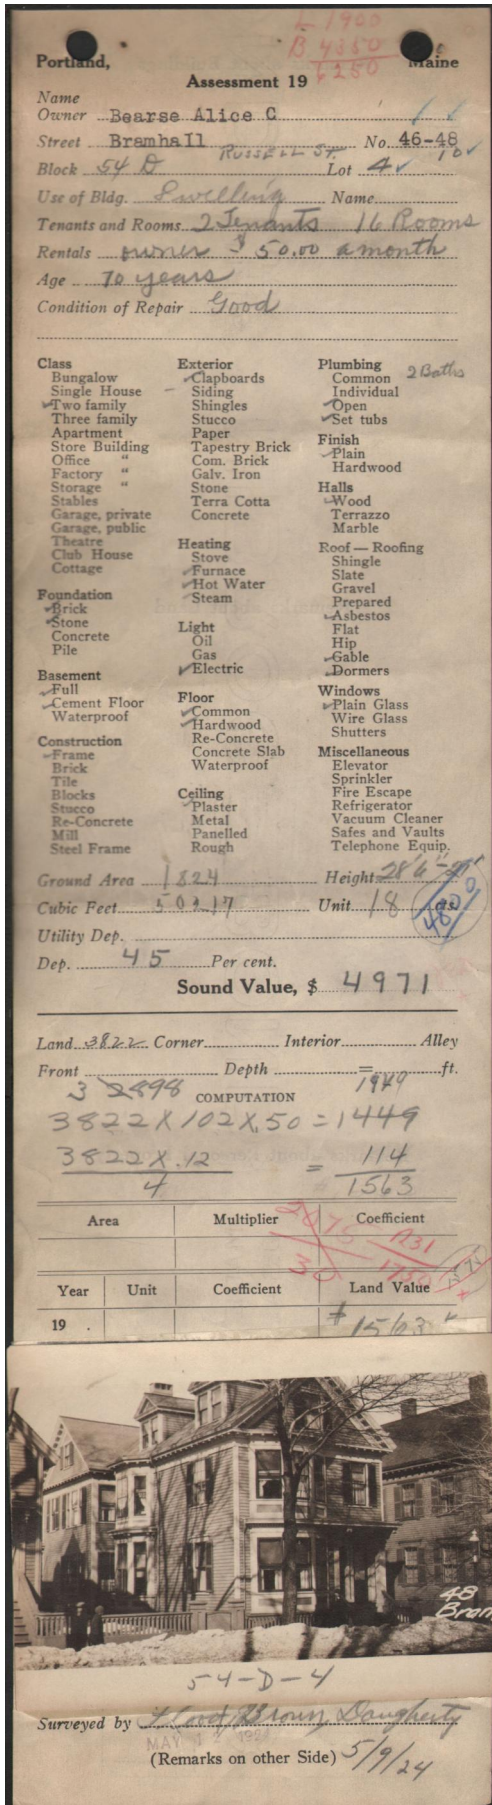 L 1900
B. 4350
6250
Portland, Maine
Assessment 19
Name
Owner Bearse Alice C
Street Bramhall No. 46-48
RUSSELL ST. 10
Block 54 D Lot 4
Use of Bldg. Dwelling Name
Tenants and Rooms 2 Tenants 16 Rooms
Rentals owner $ 50.00 a month
Age 70 years
Condition of Repair Good
Class
Bungalow
Single House
Two family
Three family
Apartment
Store Building
Office "
Factory "
Storage "
Stables
Garage, private
Garage, public
Theatre
Club House
Cottage
Foundation
Brick
Stone
Concrete
Pile
Basement
Full
Cement Floor
Waterproof
Construction
Frame
Brick
Tile
Blocks
Stucco
Re-Concrete
Mill
Steel Frame
Exterior
Clapboards
Siding
Shingles
Stucco
Paper
Tapestry Brick
Com. Brick
Galv. Iron
Stone
Terra Cotta
Concrete
Heating
Stove
Furnace
Hot Water
Steam
Light
Oil
Gas
Electric
Floor
Common
Hardwood
Re-Concrete
Concrete Slab
Waterproof
Ceiling
Plaster
Metal
Panelled
Rough
Plumbing
Common 2 Baths
Individual
Open
Set tubs
Finish
Plain
Hardwood
Halls
Wood
Terrazzo
Marble
Roof — Roofing
Shingle
Slate
Gravel
Prepared
Asbestos
Flat
Hip
Gable
Dormers
Windows
Plain Glass
Wire Glass
Shutters
Miscellaneous
Elevator
Sprinkler
Fire Escape
Refrigerator
Vacuum Cleaner
Safes and Vaults
Telephone Equip.
Ground Area 1824 Height
Cubic Feet 50217 Unit 18 cts.
4800
Utility Dep.
Dep. 45 Per cent.
Sound Value, $ 4971
Land 3822 Corner Interior Alley
Front Depth = ft.
3 2898 COMPUTATION 1949
3822 X 102 X .50 = 1449
3822 X .12 = 114
4 1563
Area Multiplier Coefficient
30 1731
1750 1575
Year Unit Coefficient Land Value
19 . $ 1563
48
Bram
54-D-4
Surveyed by Flood, Brown, Daugherty
MAY 12 192
(Remarks on other Side) 5/9/24